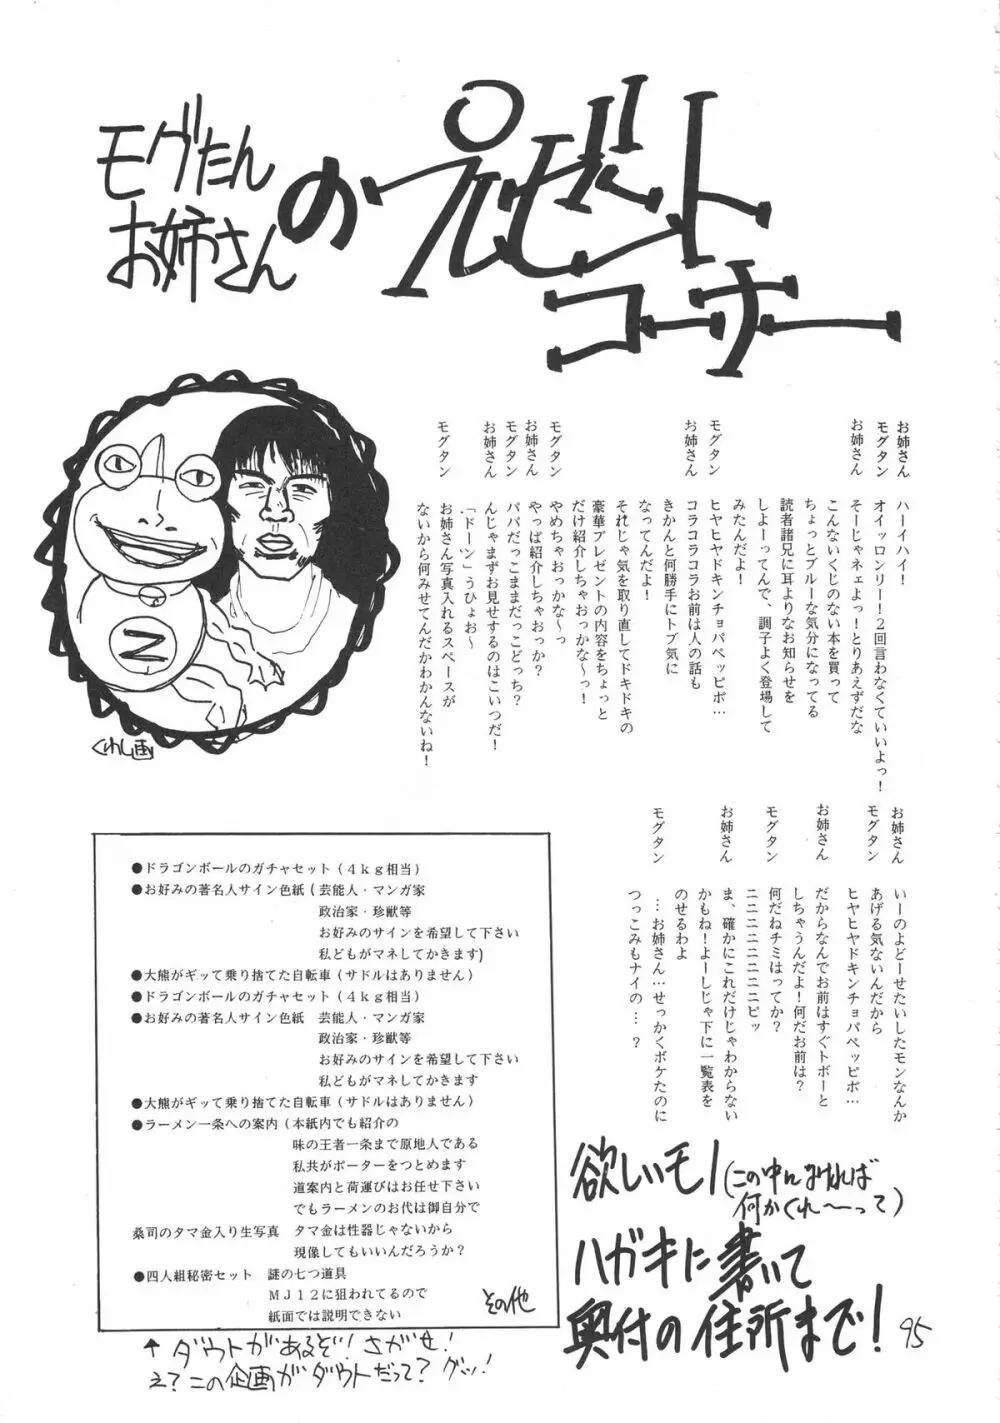 モグたん
お姉さん
の
プレゼント
コーナー
お姉さん　ハーイハイ！
モグタン　オイッロンリー！２回言わなくていいよっ！
お姉さん　そーじゃネェよっ！とりあえずだな
こんないくじのない本を買って
ちょっとブルーな気分になってる
読者諸兄に耳よりなお知らせを
しよーってんで、調子よく登場して
みたんだよ！
モグタン　ヒヤヒヤドキンチョパペッピポ…
お姉さん　コラコラコラお前は人の話も
きかんと何勝手にトブ気に
なってんだよ！
それじゃ気を取り直してドキドキの
豪華プレゼントの内容をちょっと
だけ紹介しちゃおっかな〜っ！
モグタン　やめちゃおっかな〜っ
お姉さん　やっぱ紹介しちゃおっか？
モグタン　パパだっこままだっこどっち？
お姉さん　んじゃまずお見せするのはこいつだ！
「ドーン」うひょお〜
モグタン　お姉さん写真入れるスペースが
ないから何みせてんだかわかんないね！
くわし画
お姉さん　いーのよどーせたいしたモンなんか
あげる気ないんだから
モグタン　ヒヤヒヤドキンチョパペッピポ…
お姉さん　だからなんでお前はすぐトボーと
しちゃうんだよ！何だお前は？
モグタン　何だねチミはってか？
ニニニニニニニピッ
お姉さん　ま、確かにこれだけじゃわからない
かもね！よーしじゃ下に一覧表を
のせるわよ
モグタン　…お姉さん…せっかくボケたのに
つっこみもナイの…？
●ドラゴンボールのガチャセット（４ｋｇ相当）
●お好みの著名人サイン色紙（芸能人・マンガ家
政治家・珍獣等
お好みのサインを希望して下さい
私どもがマネしてかきます）
●大熊がギッて乗り捨てた自転車（サドルはありません）
●ドラゴンボールのガチャセット（４ｋｇ相当）
●お好みの著名人サイン色紙　芸能人・マンガ家
政治家・珍獣等
お好みのサインを希望して下さい
私どもがマネしてかきます
●大熊がギッて乗り捨てた自転車（サドルはありません）
●ラーメン一条への案内（本紙内でも紹介の
味の王者一条まで原地人である
私共がポーターをつとめます
道案内と荷運びはお任せ下さい
でもラーメンのお代は御自分で
桑司のタマ金入り生写真　タマ金は性器じゃないから
現像してもいいんだろうか？
●四人組秘密セット　謎の七つ道具
ＭＪ１２に狙われてるので
紙面では説明できない
その他
↑ダウトがあるぞ！さがせ！
え？この企画がダウトだって？グッ！
欲しいモノ（この中になければ
何かくれ〜って）
ハガキに書いて
奥付の住所まで！
95